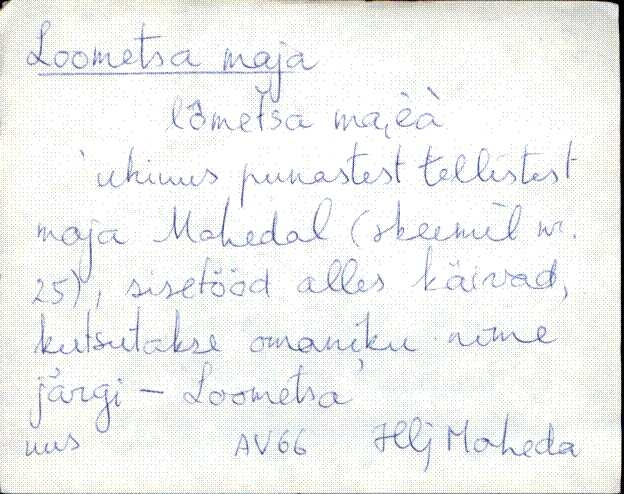 Loometsa maja
lȭmetsa mai̯èà
uhiuus punastest tellistest
maja Mahedal (skeemil nr.
25), sisetööd alles käivad,
kutsutakse omaniku nime
järgi – Loometsa
uus AV66 Hlj Maheda